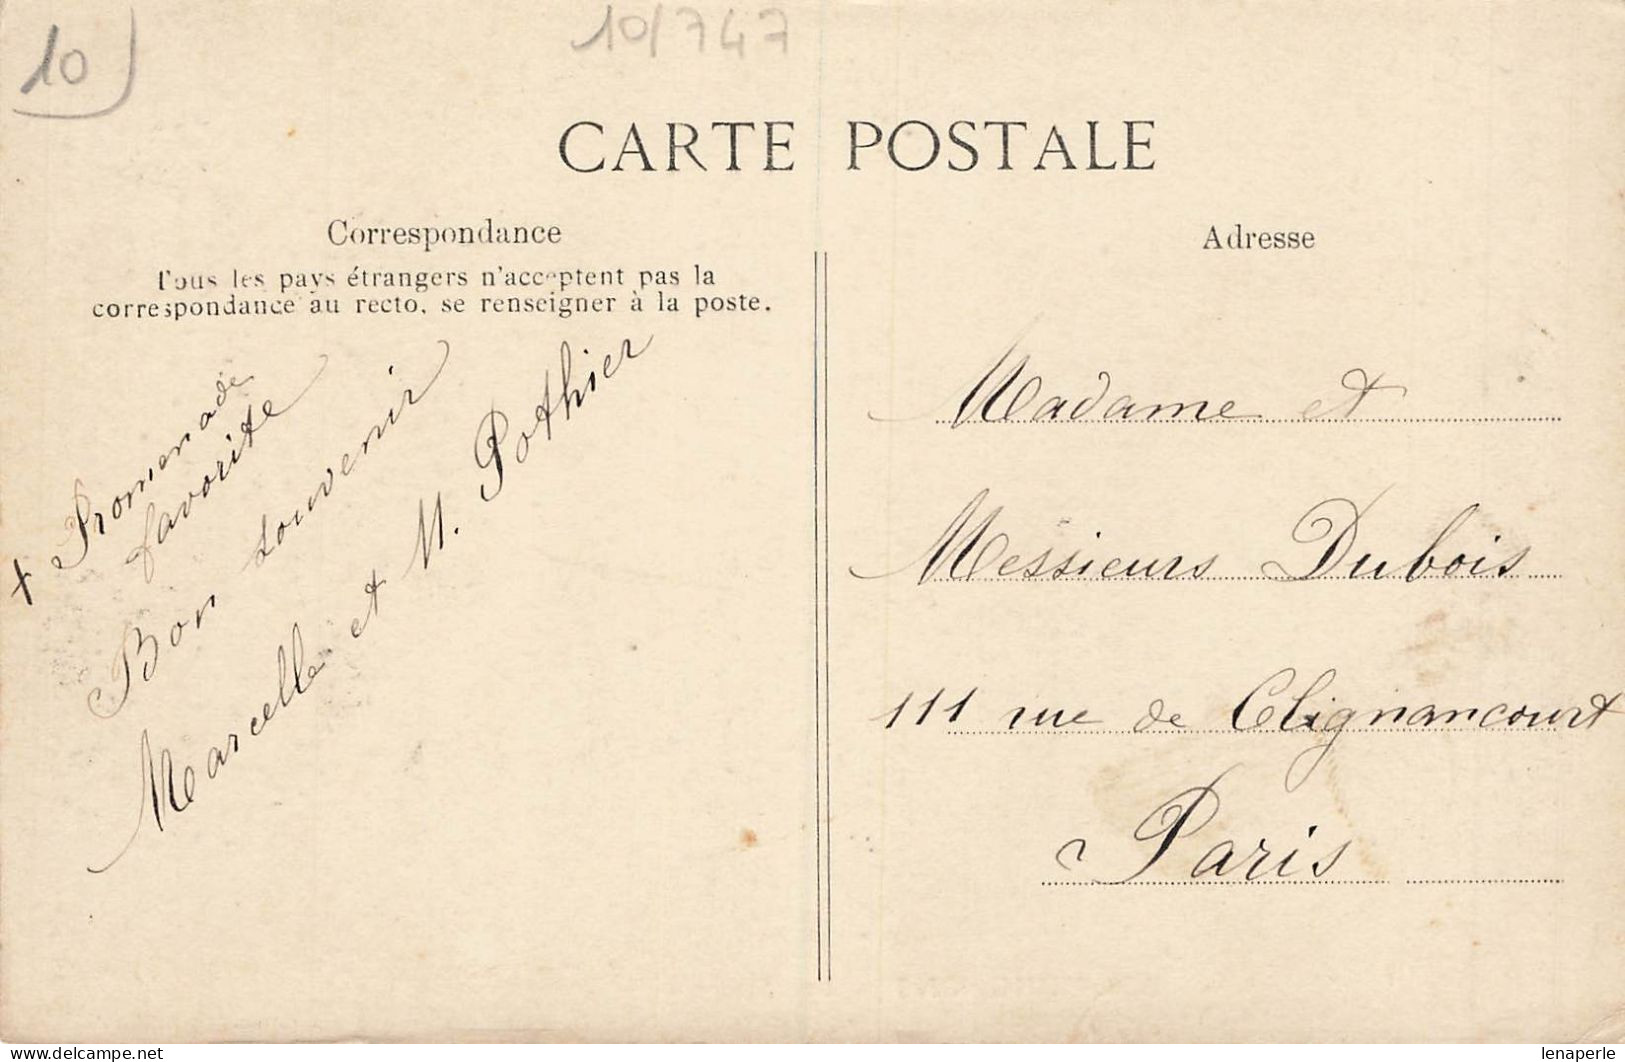 10
10/747
CARTE POSTALE
Correspondance
Tous les pays étrangers n'acceptent pas la
correspondance au recto, se renseigner à la poste.
+ Promenade
favorite
Bon souvenir
Marcelle et M. Pothier
Adresse
Madame et
Messieurs Dubois
111 rue de Clignancourt
Paris
www.delcampe.net
lenaperle